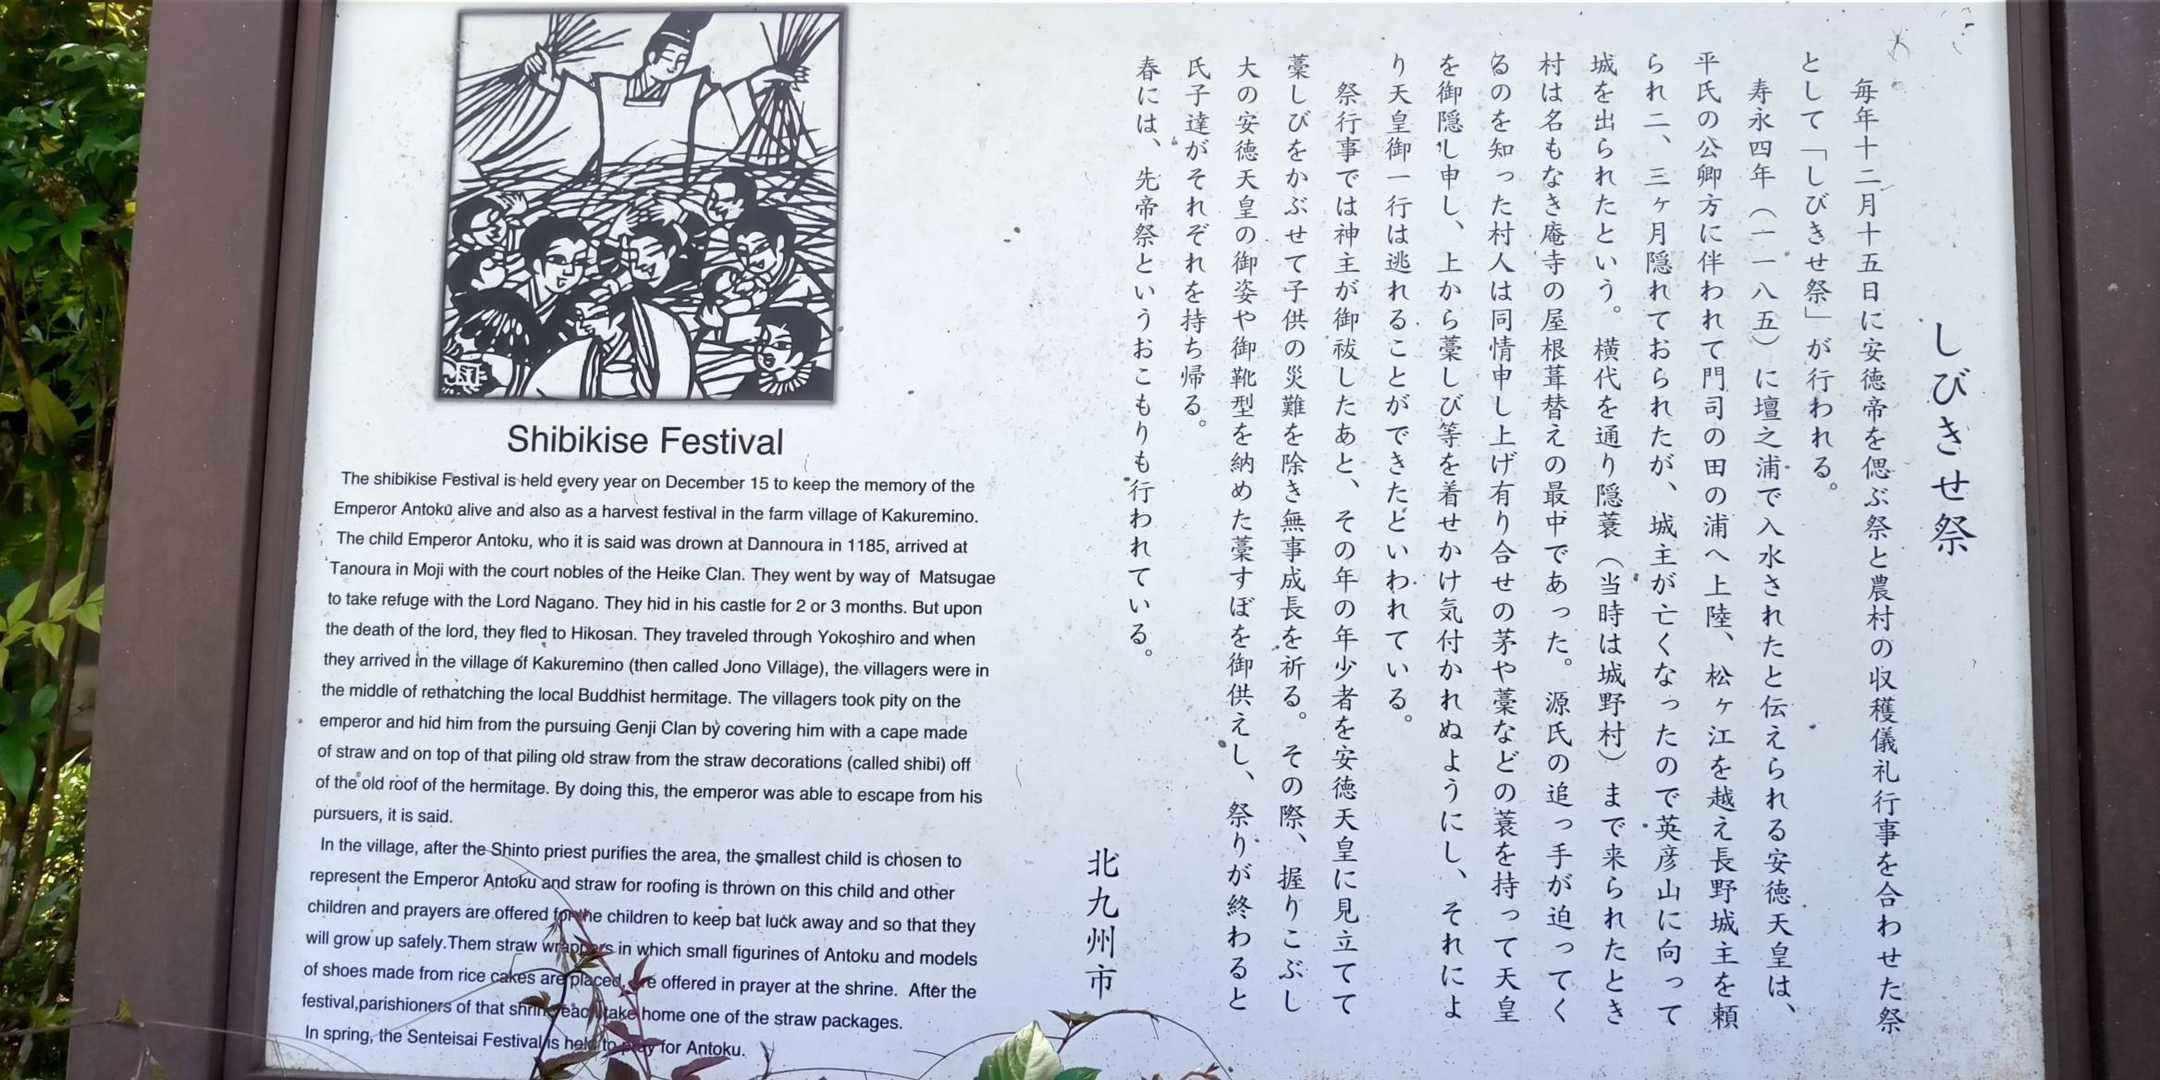 しびきせ祭
毎年十二月十五日に安徳帝を偲ぶ祭と農村の収穫儀礼行事を合わせた祭
として「しびきせ祭」が行われる。
寿永四年（一一八五）に壇之浦で入水されたと伝えられる安徳天皇は、
平氏の公卿方に伴われて門司の田の浦へ上陸、松ヶ江を越え長野城主を頼
られ二、三ヶ月隠れておられたが、城主が亡くなったので英彦山に向って
城を出られたという。横代を通り隠蓑（当時は城野村）まで来られたとき
村は名もなき庵寺の屋根葺替えの最中であった。源氏の追っ手が迫ってく
るのを知った村人は同情申し上げ有り合せの茅や藁などの蓑を持って天皇
を御隠し申し、上から藁しび等を着せかけ気付かれぬようにし、それによ
り天皇御一行は逃れることができたといわれている。
祭行事では神主が御祓したあと、その年の年少者を安徳天皇に見立てて
藁しびをかぶせて子供の災難を除き無事成長を祈る。その際、握りこぶし
大の安徳天皇の御姿や御靴型を納めた藁すぼを御供えし、祭りが終わると
氏子達がそれぞれを持ち帰る。
春には、先帝祭というおこもりも行われている。
北九州市
Shibikise Festival
The shibikise Festival is held every year on December 15 to keep the memory of the
Emperor Antoku alive and also as a harvest festival in the farm village of Kakuremino.
The child Emperor Antoku, who it is said was drown at Dannoura in 1185, arrived at
Tanoura in Moji with the court nobles of the Heike Clan. They went by way of Matsugae
to take refuge with the Lord Nagano. They hid in his castle for 2 or 3 months. But upon
the death of the lord, they fled to Hikosan. They traveled through Yokoshiro and when
they arrived in the village of Kakuremino (then called Jono Village), the villagers were in
the middle of rethatching the local Buddhist hermitage. The villagers took pity on the
emperor and hid him from the pursuing Genji Clan by covering him with a cape made
of straw and on top of that piling old straw from the straw decorations (called shibi) off
of the old roof of the hermitage. By doing this, the emperor was able to escape from his
pursuers, it is said.
In the village, after the Shinto priest purifies the area, the smallest child is chosen to
represent the Emperor Antoku and straw for roofing is thrown on this child and other
children and prayers are offered for the children to keep bat luck away and so that they
will grow up safely.Them straw wrappers in which small figurines of Antoku and models
of shoes made from rice cakes are placed, are offered in prayer at the shrine. After the
festival,parishioners of that shrine each take home one of the straw packages.
In spring, the Senteisai Festival is held to pray for Antoku.